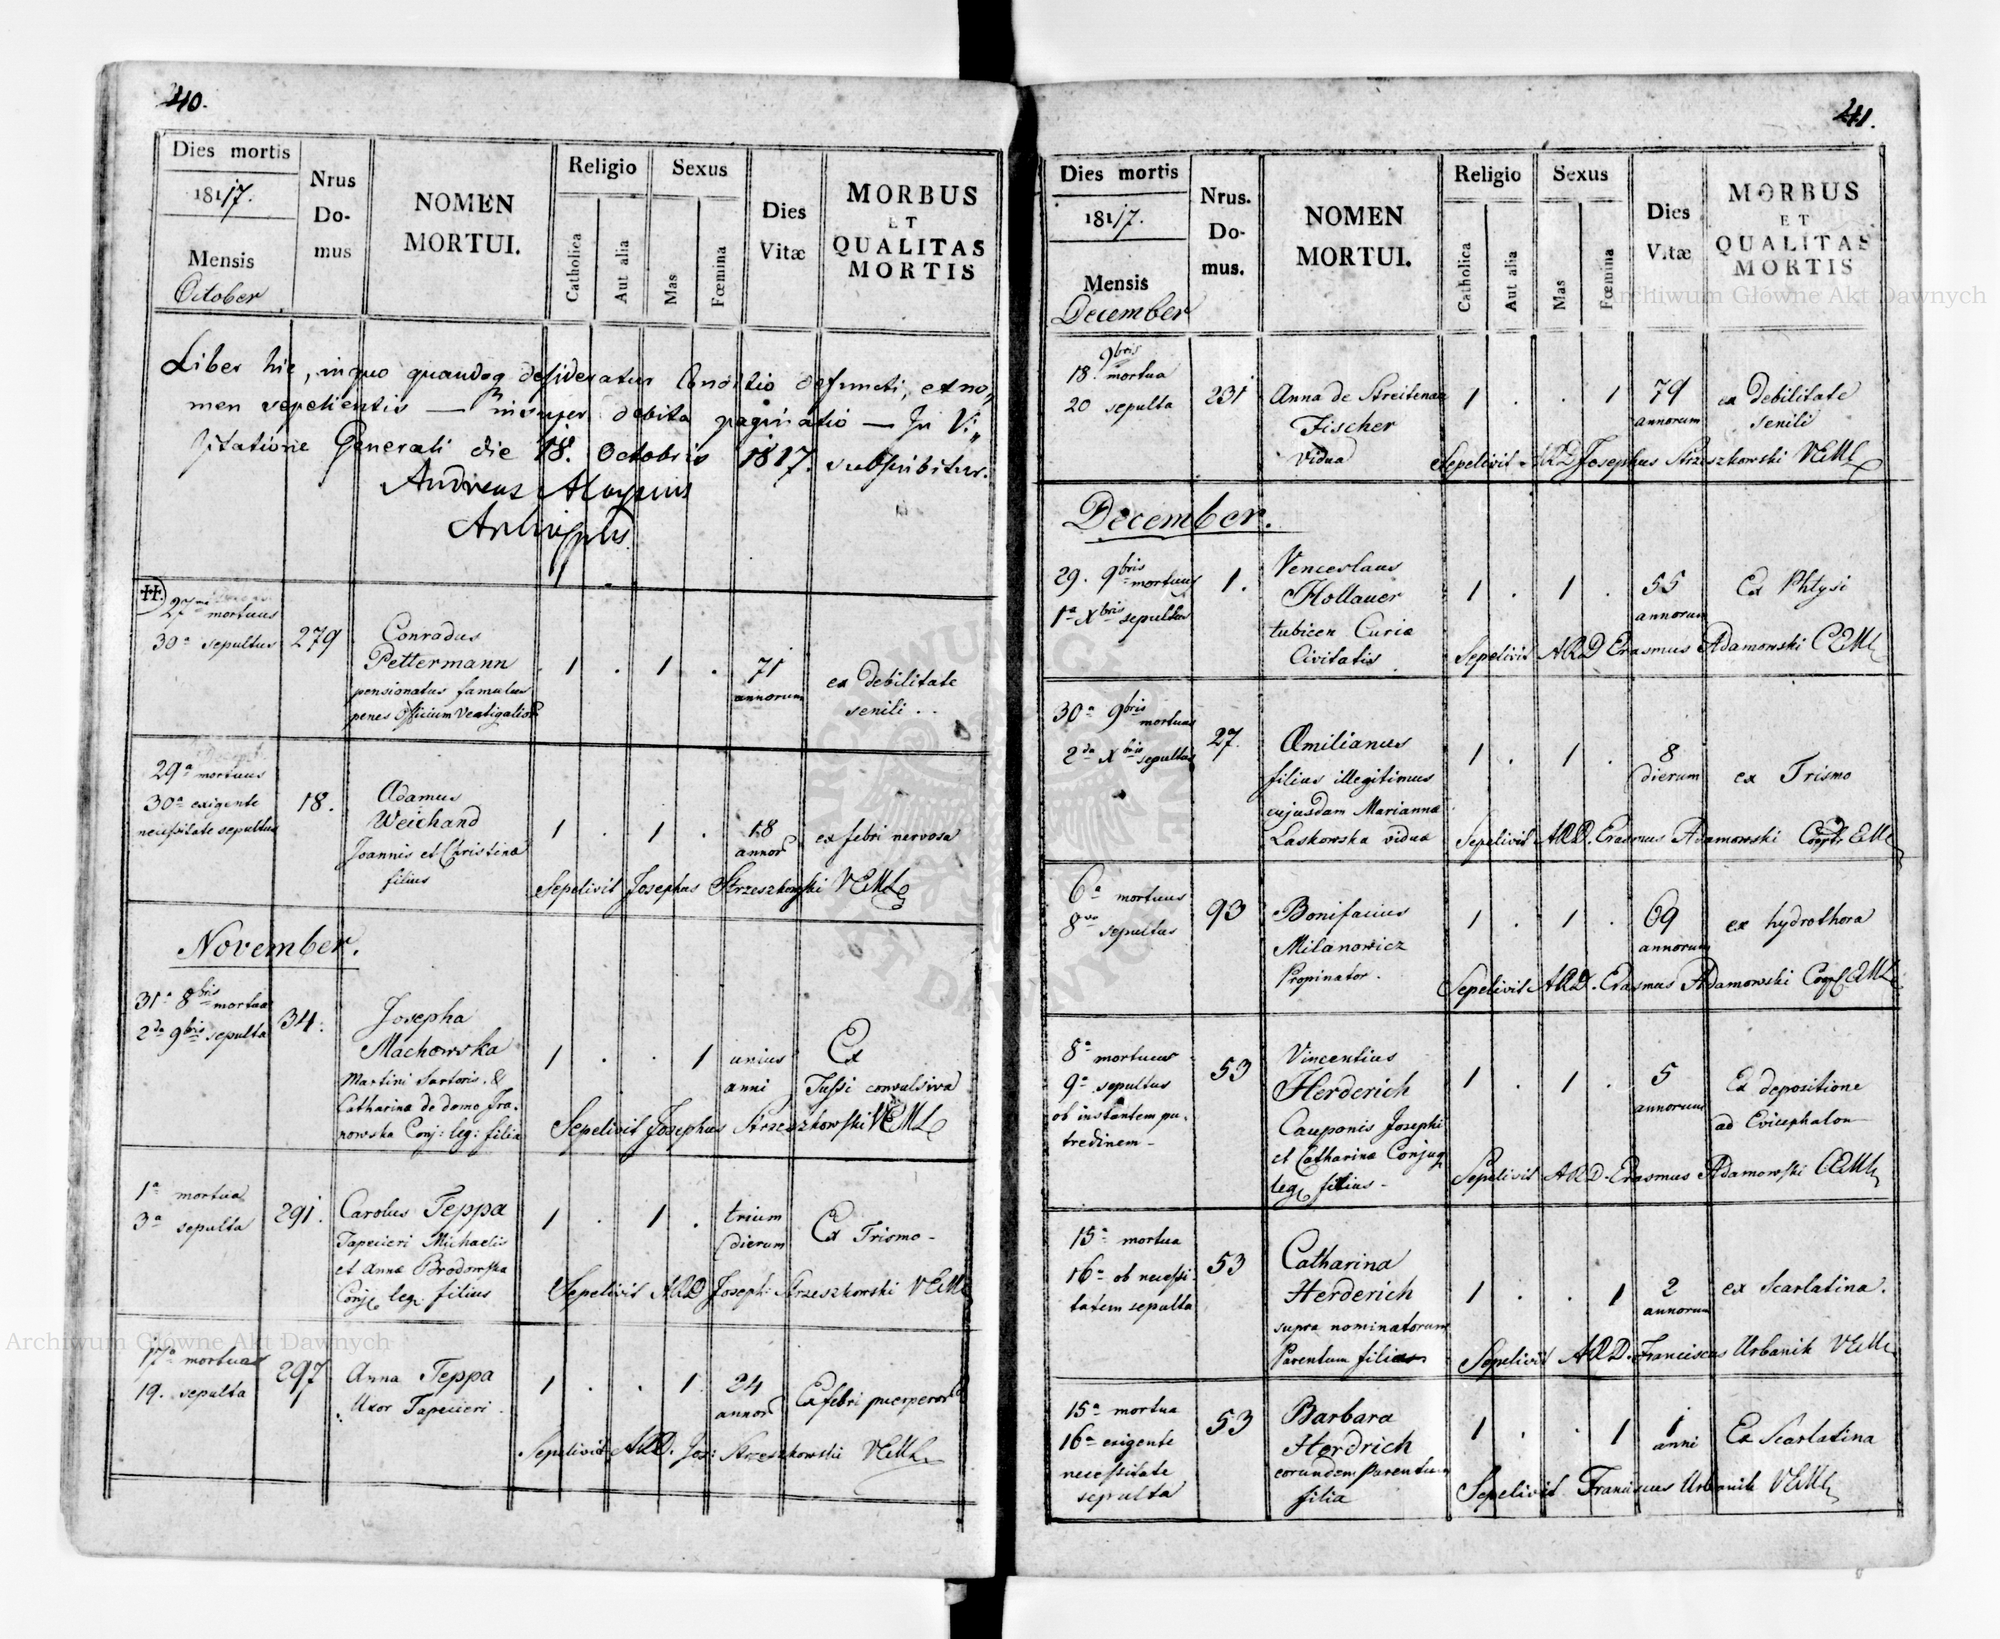 40.
Dies mortis
1817.
Mensis
October
Nrus
Do-
mus
NOMEN
MORTUI.
Religio
Catholica
Aut alia
Sexus
Mas
Fœmina
Dies
Vitæ
MORBUS
ET
QUALITAS
MORTIS
Liber hic, in quo quandoq desideratur Conditio defuncti, et no,,
men sepelientis — insuper debita paginatio — In Vi,,
sitatione Generali die 18. Octobris 1817. subscribitur.
Andreas Aloysius
27 mortuus
30a sepultus
279
Conradus
Pettermann
pensionatus famulus
penes Officium Vectigalion
1 . 1 .
71
annorum
ex debilitate
senili . .
29a mortuus
30a exigente
necessitate sepultus
18.
Adamus
Weichand
Joannis et Christinæ
filius
1 . 1 .
18
annor
ex febri nervosa
Sepelivit Josephus Strzeszkowski VEML
November.
31a 8bris mortua
2da 9bris sepulta
34.
Josepha
Machowska
Martini Sartoris. &
Catharinæ de domo Jra-
nowska Conj: leg: filia
1 . . 1
unius
anni
Ex
Tussi convulsiva
Sepelivit Josephus Strzeszkowski VEML
1a mortua
3a sepulta
291.
Carolus Teppa
Tapecieri Michaelis
et Annæ Brodowska
Conj leg. filius
1 . 1 .
trium
dierum
Ex Trismo -
Sepelivit ARD Joseph: Strzeszkowski VEML
17a mortua
19. sepulta
297
Anna Teppa
Uxor Tapecieri.
1 . . 1
24
annor
Ex febri puerperor
Sepelivit ARD. Jos: Strzeszkowski VEML
41.
Dies mortis
1817.
Mensis
December
Nrus.
Do-
mus.
NOMEN
MORTUI.
Religio
Catholica
Aut alia
Sexus
Mas
Fœmina
Dies
Vitæ
MORBUS
ET
QUALITAS
MORTIS
9bris
18. mortua
20 sepulta
231
Anna de Streitenau
Fischer
Vidua
1 . . 1
79
annorum
ex debilitate
senili
Sepelivit ARD Josephus Strzeszkowski VEML
December.
29. 9bris mortuus
1a Xbris sepultus
1.
Venceslaus
Hollauer
tubicen Curiæ
Civitatis
1 . 1 .
55
annorum
Ex Phtysi
Sepelivit ARD Erasmus Adamowski CEML
30a 9bris mortuus
2da Xbris sepultus
27.
Æmilianus
filius illegitimus
cujusdam Mariannæ
Laskowska viduæ
1 . 1 .
8
dierum
ex Trismo
Sepelivit ARD. Erasmus Adamowski Cooptr EML
6a mortuus
8va sepultus
93
Bonifacius
Milanowicz
Propinator.
1 . 1 .
69
annorum
ex hydrothora
Sepelivit ARD. Erasmus Adamowski Coop EML
8a mortuus
9a sepultus
ob instantem pu-
tredinem -
53
Vincentius
Herderich
Cauponis Josephi
et Catharinæ Conjug
leg filius -
1 . 1 .
5
annorum
Ex depositione
ad Encephalon
Sepelivit ARD. Erasmus Adamowski CEML
15a mortua
16a ob necessi-
tatem sepulta
53
Catharina
Herderich
supra nominatorum
Parentum filia
1 . . 1
2
annorum
ex Scarlatina.
Sepelivit ARD. Franciscus Urbanik VEML
15a mortua
16a exigente
necessitate
sepulta
53
Barbara
Herdrich
eorundem Parentum
filia
1 . . 1
1
anni
Ex Scarlatina
Sepelivit Franciscus Urbanik VEML
Archiwum Główne Akt Dawnych
Archiwum Główne Akt Dawnych